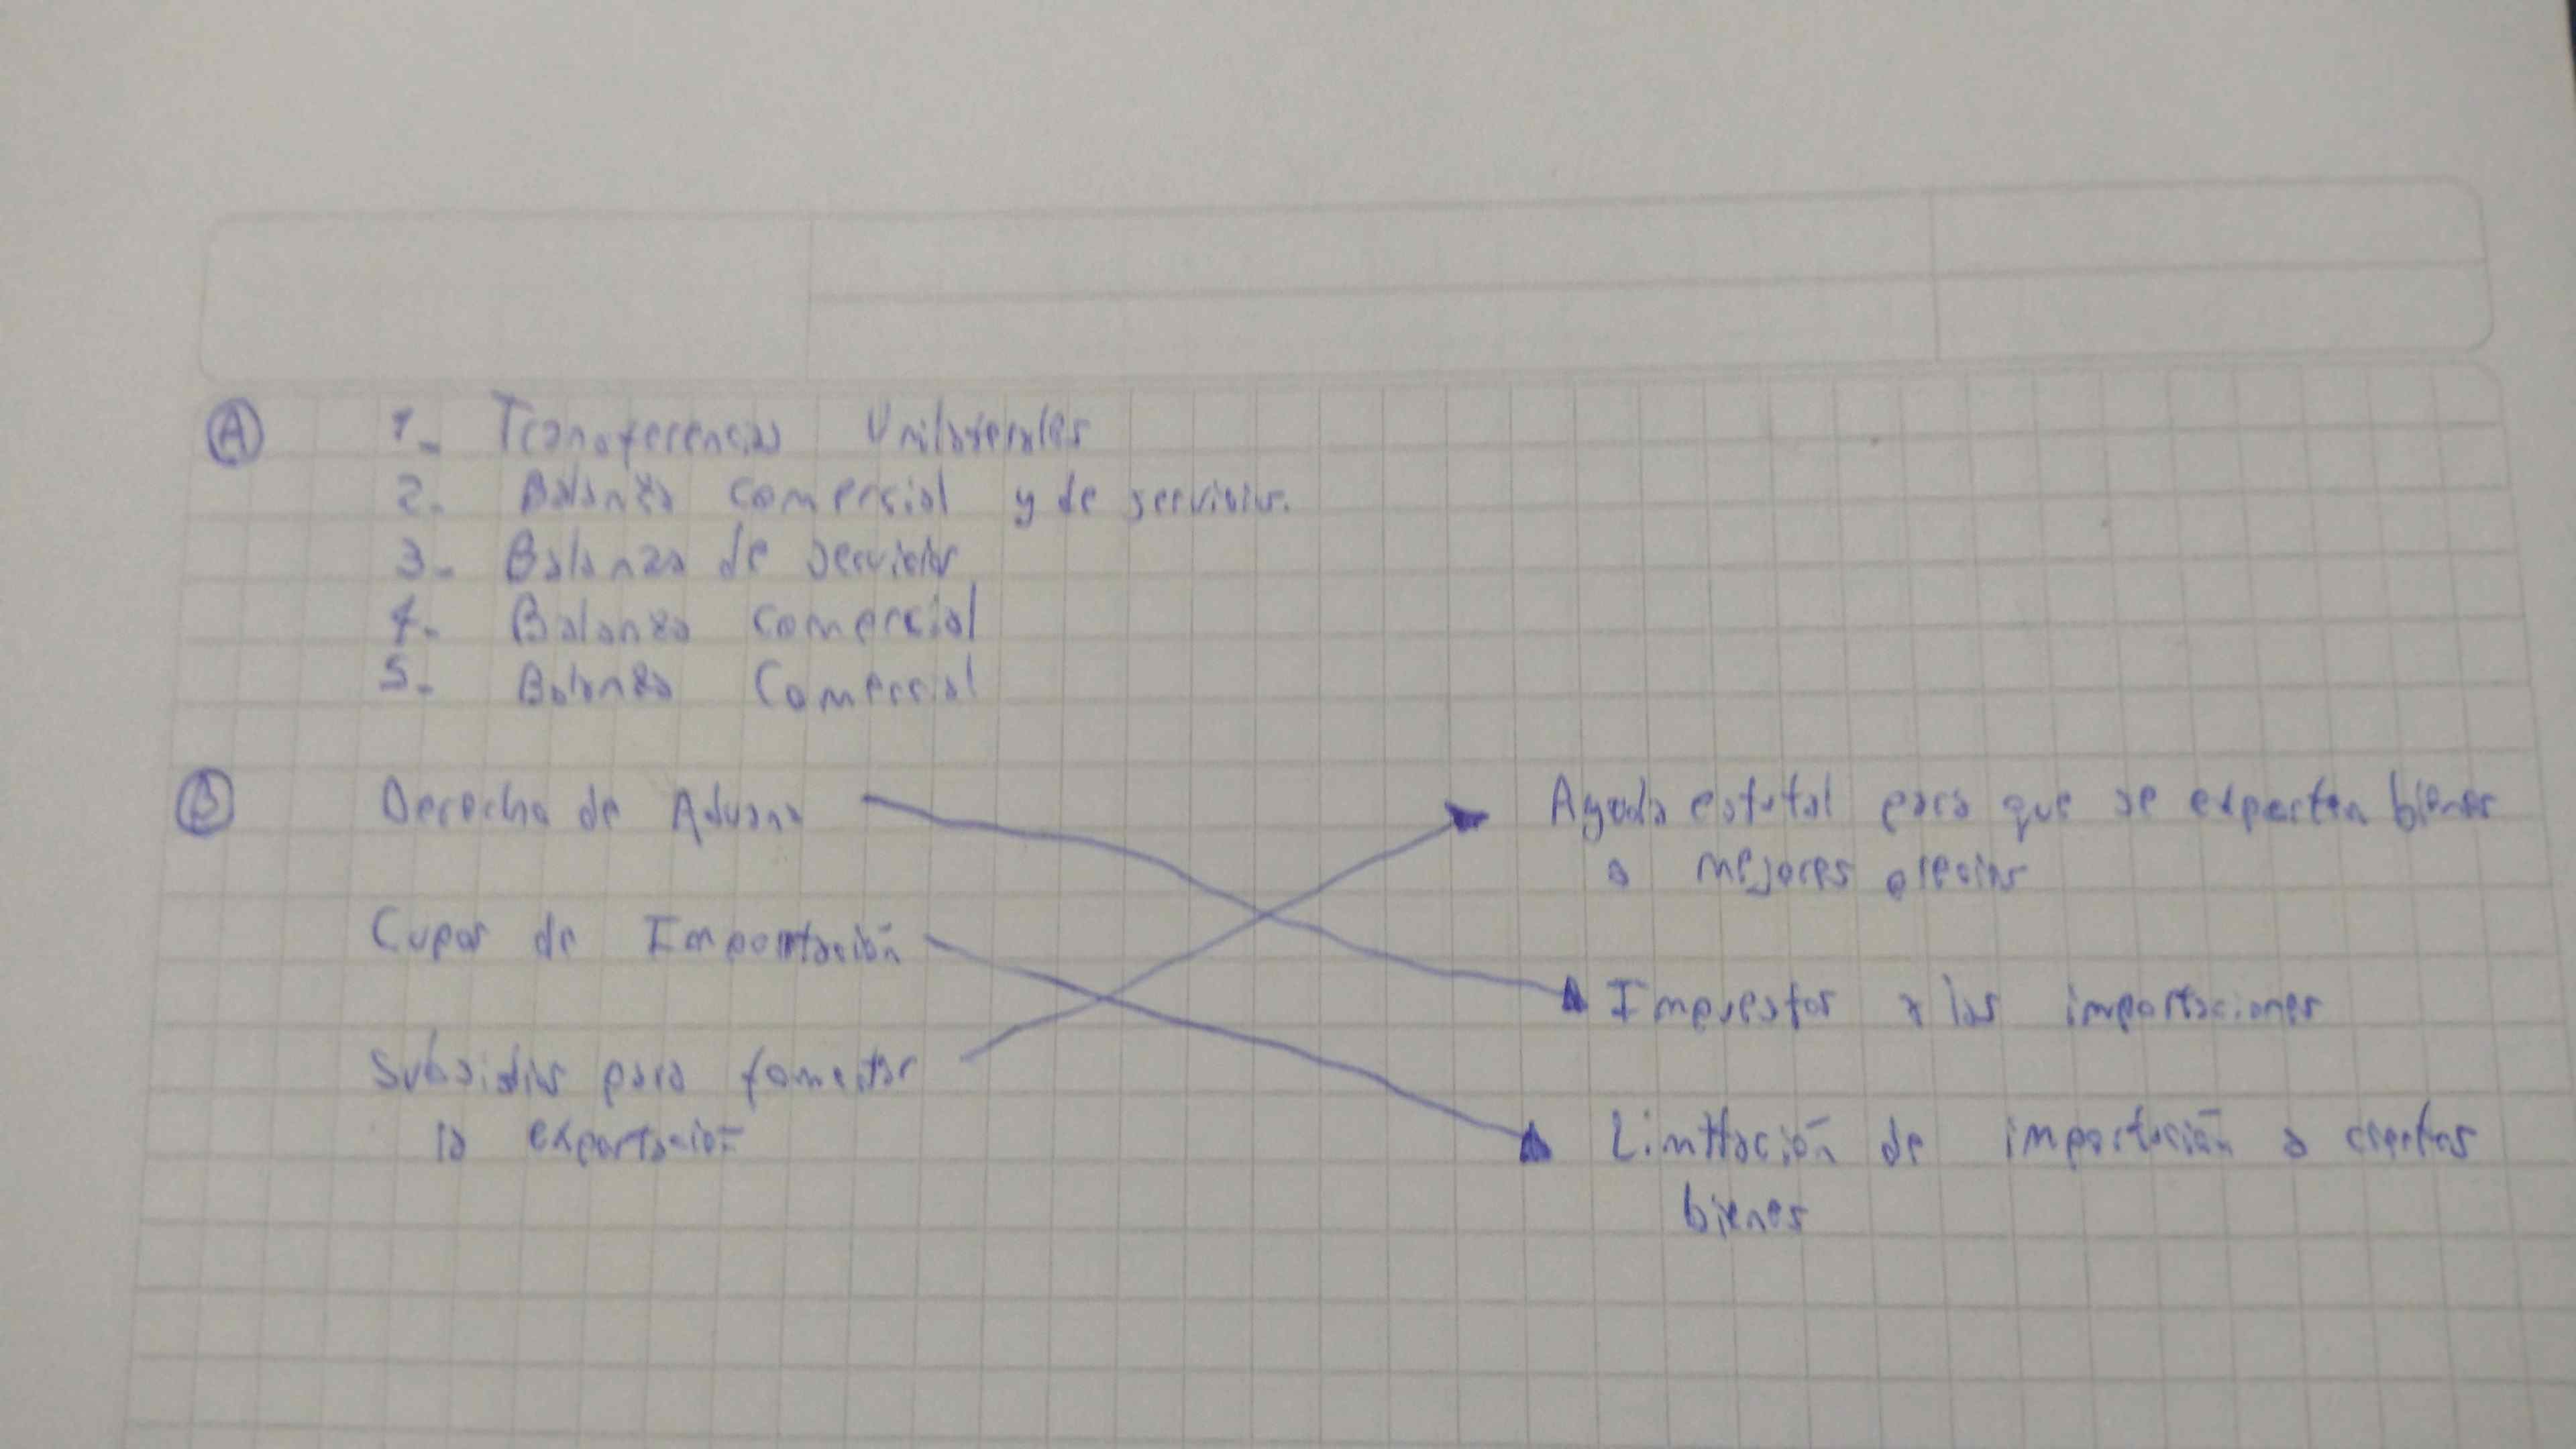 A 1- Transferencias Unilaterales
2- Balanza comercial y de servicios.
3- Balanza de servicios
4- Balanza comercial
5- Balanza Comercial
B Derecho de Aduana Ayuda estatal para que se exporten bienes
a mejores precios
Cupos de Importación Impuestos a las importaciones
Subsidios para fomentar Limitación de importación a ciertos
la exportación bienes